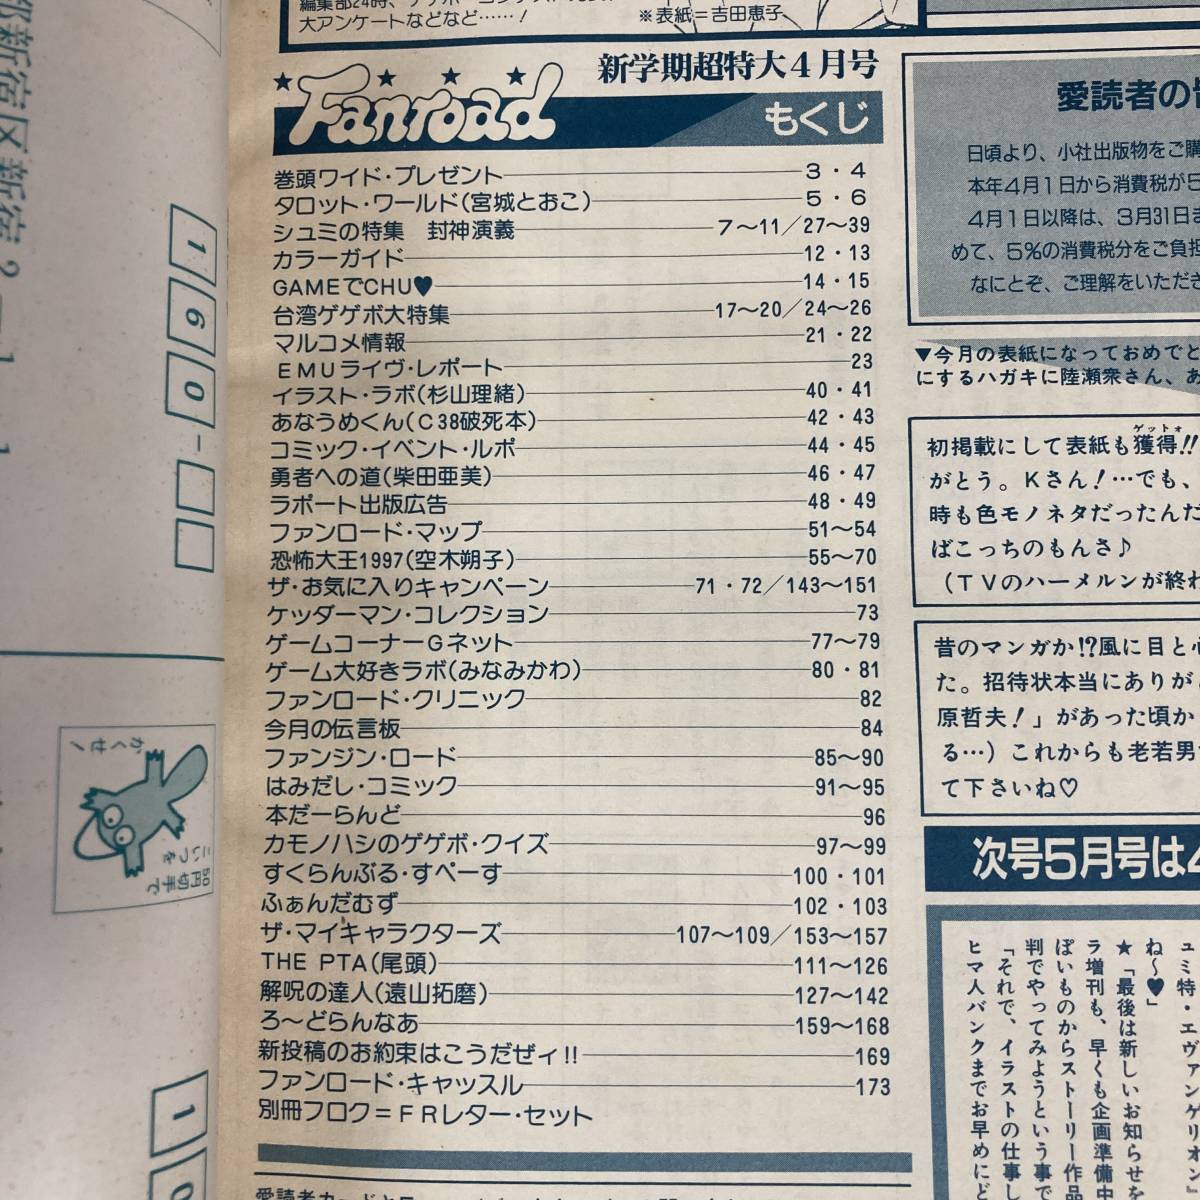 大アンケートなどなど……!
※表紙=吉田恵子
新学期超特大4月号
Fanroad
もくじ
巻頭ワイド・プレゼント 3・4
タロット・ワールド(宮城とおこ) 5・6
シュミの特集 封神演義 7〜11/27〜39
カラーガイド 12・13
GAMEでCHU♥ 14・15
台湾ゲゲボ大特集 17〜20/24〜26
マルコメ情報 21・22
EMUライヴ・レポート 23
イラスト・ラボ(杉山理緒) 40・41
あなうめくん(C38破死本) 42・43
コミック・イベント・ルポ 44・45
勇者への道(柴田亜美) 46・47
ラポート出版広告 48・49
ファンロード・マップ 51〜54
恐怖大王1997(空木朔子) 55〜70
ザ・お気に入りキャンペーン 71・72/143〜151
ケッダーマン・コレクション 73
ゲームコーナーGネット 77〜79
ゲーム大好きラボ(みなみかわ) 80・81
ファンロード・クリニック 82
今月の伝言板 84
ファンジン・ロード 85〜90
はみだし・コミック 91〜95
本だーらんど 96
カモノハシのゲゲボ・クイズ 97〜99
すくらんぶる・すぺーす 100・101
ふぁんだむず 102・103
ザ・マイキャラクターズ 107〜109/153〜157
THE PTA(尾頭) 111〜126
解呪の達人(遠山拓磨) 127〜142
ろ〜どらんなあ 159〜168
新投稿のお約束はこうだぜィ!! 169
ファンロード・キャッスル 173
別冊フロク=FRレター・セット
愛読者の
日頃より、小社出版物をご購
本年4月1日から消費税が5
4月1日以降は、3月31日ま
めて、5%の消費税分をご負担
なにとぞ、ご理解をいただき
▼今月の表紙になっておめでと
にするハガキに陸瀬衆さん、あ
初掲載にして表紙も獲得!!
ゲットォ
がとう。Kさん!…でも、
時も色モノネタだったんだ
ばこっちのもんさ♪
(TVのハーメルンが終わ
昔のマンガか!?風に目と心
た。招待状本当にありが
原哲夫!」があった頃か
る…)これからも老若男
て下さいね♡
次号5月号は
ュミ特・エヴァンゲリオン」
ね〜♥」
★「最後は新しいお知らせを
ラ増刊も、早くも企画準備中
ぽいものからストーリー作品
判でやってみようという事で
「それで、イラストの仕事し
ヒマ人バンクまでお早めにど
新宿区新宿2
160-
かくせ!
50円切手で
こいつを